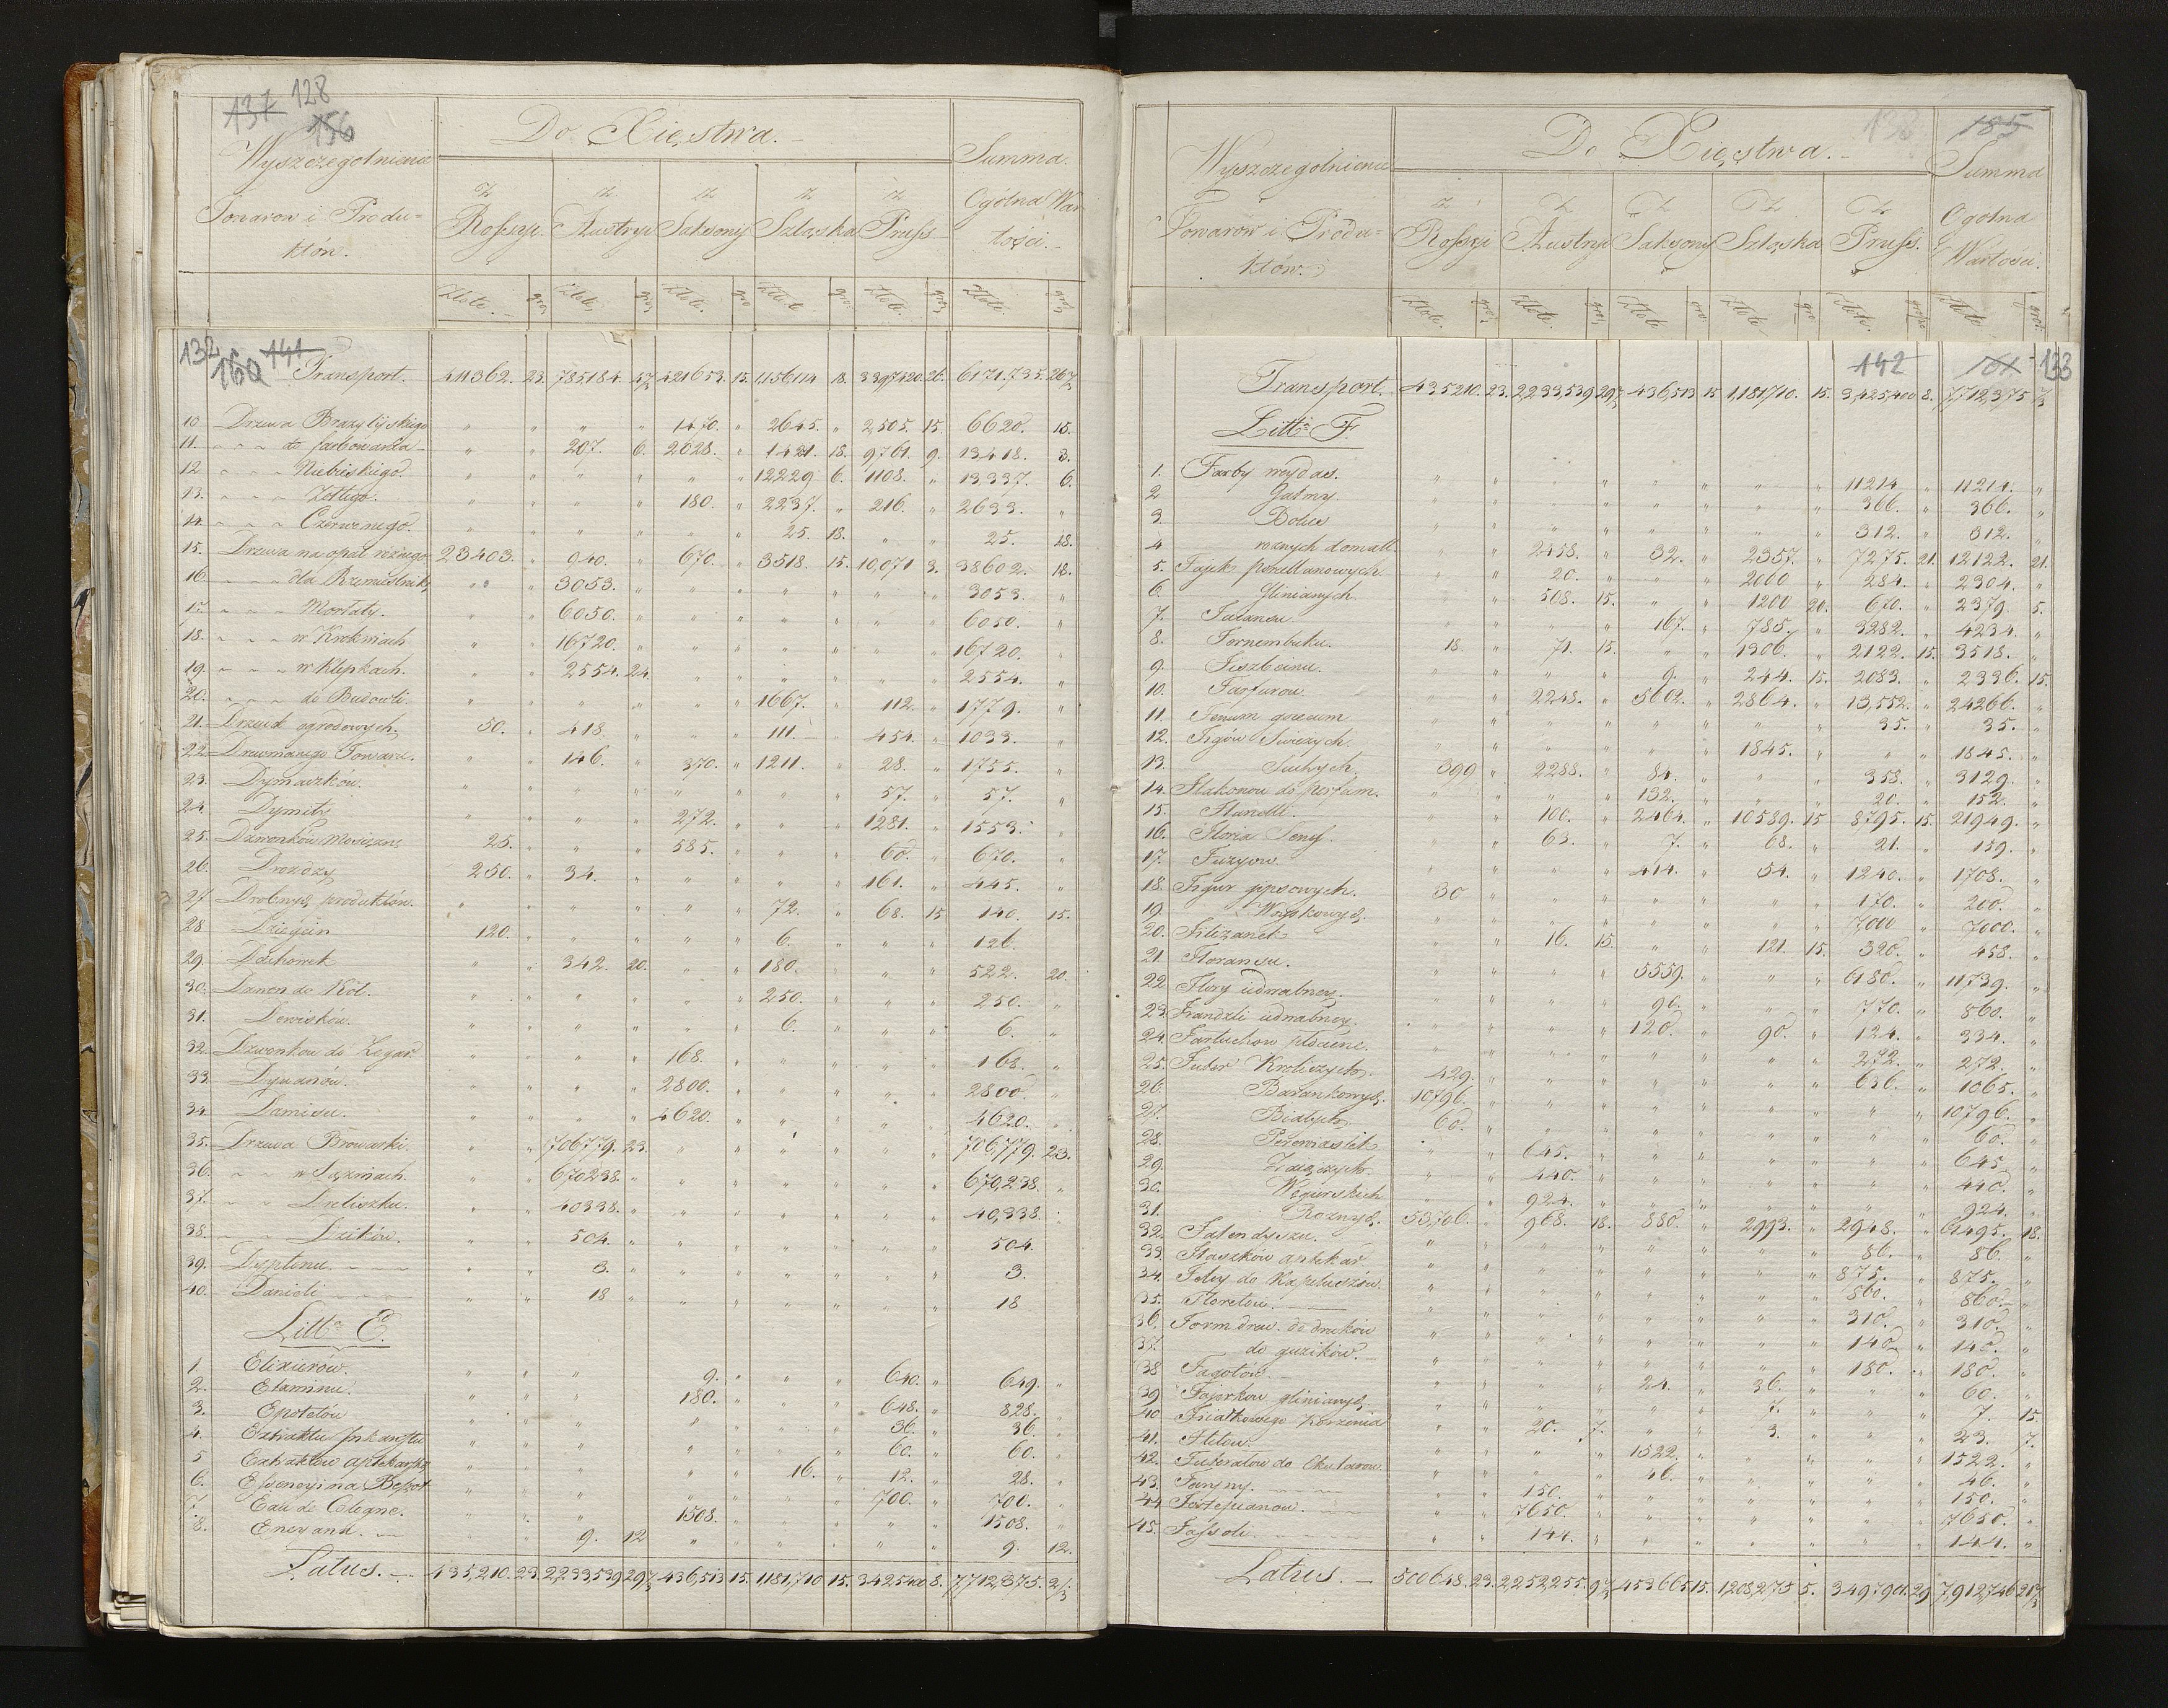 137 128
156
Wyszczegolnienie
Towarow i Produ=
któw.
Do Xięstwa.
Summa
Ogólna War
tości.
z Rossyi. z Austryi z Saksonij z Szląska z Pruss
Złote. gro. Złote. gro. Złote. gro. Złote gro. Złote. gro. Złote. gro.
132 160 141
Transport. 411362. 23. 785184. 421653. 15. 1,156,114 18. 3397420. 26. 6171,735. 26
10 Drzewa Brazylijskiego " " " " 1470. " 2645. " 2,505. 15. 6620. 15.
11. " " " do farbowania " " 207. 6. 2028. " 1421. 18. 9761. 9. 13418. 3.
12 " " " Niebieskiego. " " " " " " 12229 6. 1108. " 13,337. 6.
13. " " " Zołtego. " " " " 180. " 2237. " 216. " 2633. "
14. " " " Czerwonego. " " " " " " 25. 18. " " 25. 18.
15. Drzewa na opał rożnego 23403. " 940. " 670. " 3518. 15. 10,071 3. 38602. 18.
16. " " " dla Rzemieslnik. " " 3053. " " " " " " " 3053. "
17. " " " Morłaty. " " 6050. " " " " " " " 6050. "
18. " " " w Krokwiach " " 16720. " " " " " " " 16720. "
19. " " " w Klepkach. " " 2554. 24 " " " " " " 2554. "
20. " " " do Budowli. " " " " " " 1667. " 112. " 1779. "
21. Drzewek ogrodowych. 50. " 418 " " " 111. " 454. " 1033. "
22 Drewnianego Towaru. " " 146. " 370. " 1211. " 28. " 1755. "
23. Dymaczków. " " " " " " " " 57. " 57. "
24. Dymitr " " " " 272. " " " 1281. " 1553. "
25. Dzwonków Mosiężn. 25. " " " 585. " " " 60. " 670. "
26. Drozdzy 250. " 34. " " " " " 161. " 445. "
27. Drobnych produktów. " " " " " " 72. " 68. 15 140. 15.
28 Dziegciu 120. " " " " " 6. " " " 126. "
29. Dachowek " " 342. 20. " " 180. " " " 522. 20.
30. " " " " " " 250. " " " 250. "
31. " " " " " " 6. " " " 6. "
32. Dzwonkow do Zegar. " " " " 168. " " " " " 168. "
33. Dywanów. " " " " 2800. " " " " " 2800. "
34. " " " " 4620. " " " " " 4620. "
35. Drzewa " " 706779. 23. " " " " " " 706,779. 23.
36. " " w Sążniach. " " 670238. " " " " " " " 670,238. "
37. " " Dreliszku. " " 40338. " " " " " " " 40,338. "
38. " " Dzików. " " 504. " " " " " " " 504. "
39. " " 3. " " " " " " " 3. "
40. Danieli " " 18 " " " " " " " 18
Litt: E.
1. Elixirów. " " " " 9. " " " 640. " 649. "
2. Etaminu. " " " " 180. " " " 648. " 828. "
3. Epoletów " " " " " " " " 36. " 36. "
4. Extraktu " " " " " " " " 60. " 60. "
5 Extraktow aptekarskich " " " " " " 16. " 12. " 28. "
6. Essencyi na " " " " " " " " 700. " 700. "
7. Eau de Cologne. " " " " 1508. " " " " " 1508. "
8. Encyanu. " " 9. 12 " " " " " " 9. 12.
Latus. 435,210. 23. 2,233,539 29 436,513 15. 1,181,710 15. 3425400 8. 7,712,375. 2/3
138 185
Wyszczegolnienie
Towarów i Produ=
któw.
Do Xięstwa.
Summa
Ogólna
Wartosci.
z Rossyi z Austryi z Saksonij z Szląska z Pruss.
Złote. gro. Złote. gro. Złote gro. Złote. gro. Złote. gro. Złote. gro.
142 161 133
Transport. 435210. 23. 2,233,539 29 436,513 15 1,181,710. 15. 3,425,400 8. 7,712,375 2/3
Litt: F.
1. Farby " " " " " " " " 11214 " 11214. "
2 " " " " " " " " 366. " 366. "
3. " " " " " " " " 312. " 312. "
4 roznych " " 2458. " 32. " 2357. " 7275. 21. 12122. 21.
5. Fajek porcelanowych " " 20. " " " 2000 " 284. " 2304. "
6. Glinianych " " 508. 15. " " 1200 20. 670. " 2379. 5.
7. " " " " 167. " 785. " 3282. " 4234. "
8. Fernembuku. 18. " 71. 15. " " 1306. " 2122. 15. 3518. "
9. Fiszbeinu. " " " " 9. " 244. 15. 2083. " 2336. 15.
10. Farfurow " " 2248. " 5602. " 2864. " 13,552. " 24266. "
11. Fenum grecum " " " " " " " " 35. " 35. "
12. Figów Swieżych. " " " " " " 1845. " " " 1845. "
13. Suchych. 399 " 2288. " 84. " " " 358. " 3129. "
14. Flakonow do perfum. " " " " 132. " " " 20. " 152. "
15. Flanelli. " " 100. " 2464. " 10589. 15 8795. 15. 21949. "
16. " " 63. " 7. " 68. " 21. " 159. "
17. Fuzyow " " " " 414. " 54. " 1240. " 1708. "
18. Figur gipsowych. 30 " " " " " " " 170. " 200. "
19. Woyskowych. " " " " " " " " 7,000 " 7000. "
20. Filizanek " " 16. 15. " " 121. 15. 320. " 458. "
21. Floransu. " " " " 5559. " " " 6180. " 11,739. "
22. Flory iedwabney. " " " " 90. " " " 770. " 860. "
23. Frandzli iedwabney. " " " " 120. " 90. " 124. " 334. "
24. Fartuchow płocienc. " " " " " " " " 272. " 272. "
25. Futer Kroliczych. 429. " " " " " " " 636. " 1065. "
26. Barankowych. 10796. " " " " " " " " " 10796. "
27. Białych 60. " " " " " " " " " 60. "
28. " " 645. " " " " " " " 645. "
29. Zaięczych " " 440. " " " " " " " 440. "
30. Węgierskich " " 924. " " " " " " " 924. "
31. Roznych. 53,706. " 968. 18. 880. " 2993. " 2948. " 61495. 18.
32. Falendyszu. " " " " " " " " 86. " 86. "
33. Flaszków aptekar " " " " " " " " 875. " 875. "
34. do Kapeluszów. " " " " " " " " 860. " 860. "
35. Floretow. " " " " " " " " 310. " 310. "
36. Form drew. do druków " " " " " " " " 140. " 140. "
37. do guzików. " " " " " " " " 180. " 180. "
38 Fagotów. " " " " 24. " 36. " " " 60. "
39 Fajerkow glinianych " " " " " " 7. " " " 7. 15.
40 Fiałkowego Korzenia " " 20. 7. " " 3. " " " 23. 7.
41. " " " " 1522. " " " " " 1522. "
42. Futerałow do Okularow. " " " " 46. " " " " " 46. "
43. " " 150. " " " " " " " 150. "
44 Fortepianow. " " 7650. " " " " " " " 7650. "
45. Fassoli. " " 144. " " " " " " " 144. "
Latus. 500648. 23. 2,252,255. 9 453665 15. 1,208,275 5. 3497901. 29 7,912,746 21